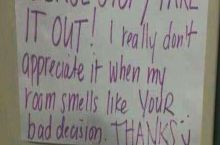 TAKE
IT OUT! I really don't
appreciate it when my
room smells like YOUR
bad decision. THANKS :)